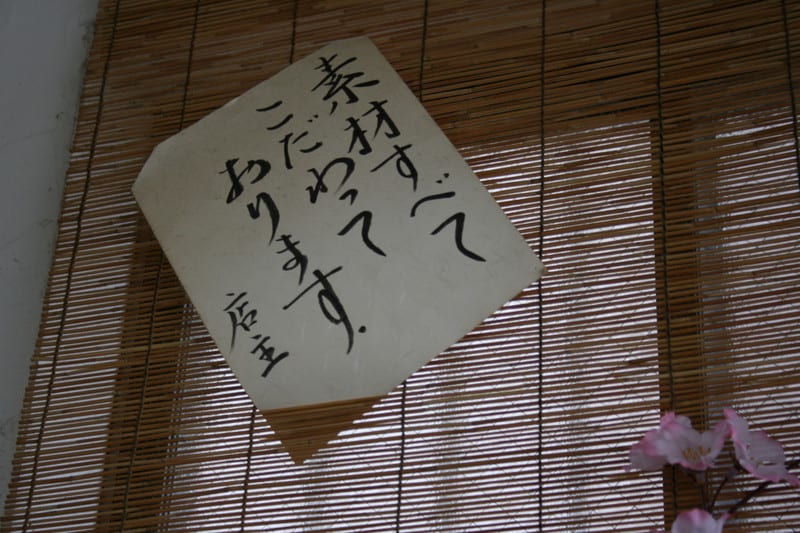 素材すべて
こだわって
おります.
店主